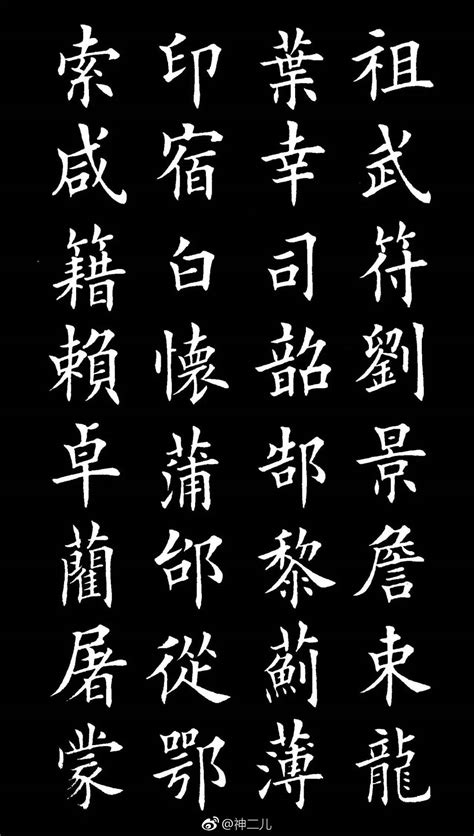 祖武符劉景詹束龍
葉幸司韶郜黎薊薄
印宿白懷蒲邰從鄂
索咸籍賴卓藺屠蒙
@神二儿